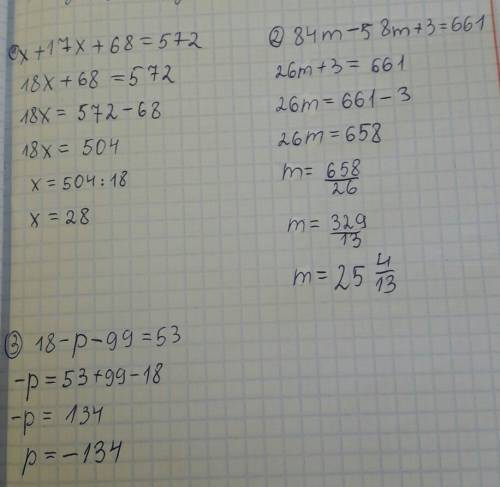 ① x+17x+68=572
18x+68=572
18x=572-68
18x=504
x=504:18
x=28
② 84m-58m+3=661
26m+3=661
26m=661-3
26m=658
m=658/26
m=329/13
m=25 4/13
③ 18-p-99=53
-p=53+99-18
-p=134
p=-134